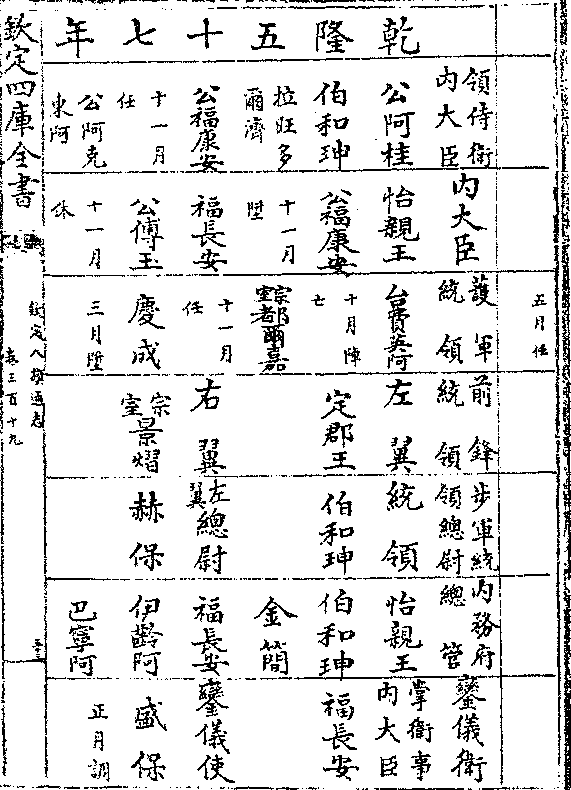 乾隆五十七年
領侍衛
內大臣
公阿桂
伯和珅
拉旺多
爾濟
公福康安
十一月
任
公阿克
東阿
內大臣
怡親王
公福康安
十一月
陞
福長安
公傅玉
十一月
休
五月任
護軍
統領
台費英阿
十月陣
亡
宗室都爾嘉
十一月
任
慶成
三月陞
前鋒
統領
左翼
定郡王
右翼
宗室景熠
步軍統
領總尉
統領
伯和珅
左翼總尉
赫保
內務府
總管
怡親王
伯和珅
金簡
福長安
伊齡阿
巴寧阿
鑾儀衛
掌衛事
內大臣
福長安
鑾儀使
盛保
正月調
欽定四庫全書
欽定八旗通志
卷三百十九